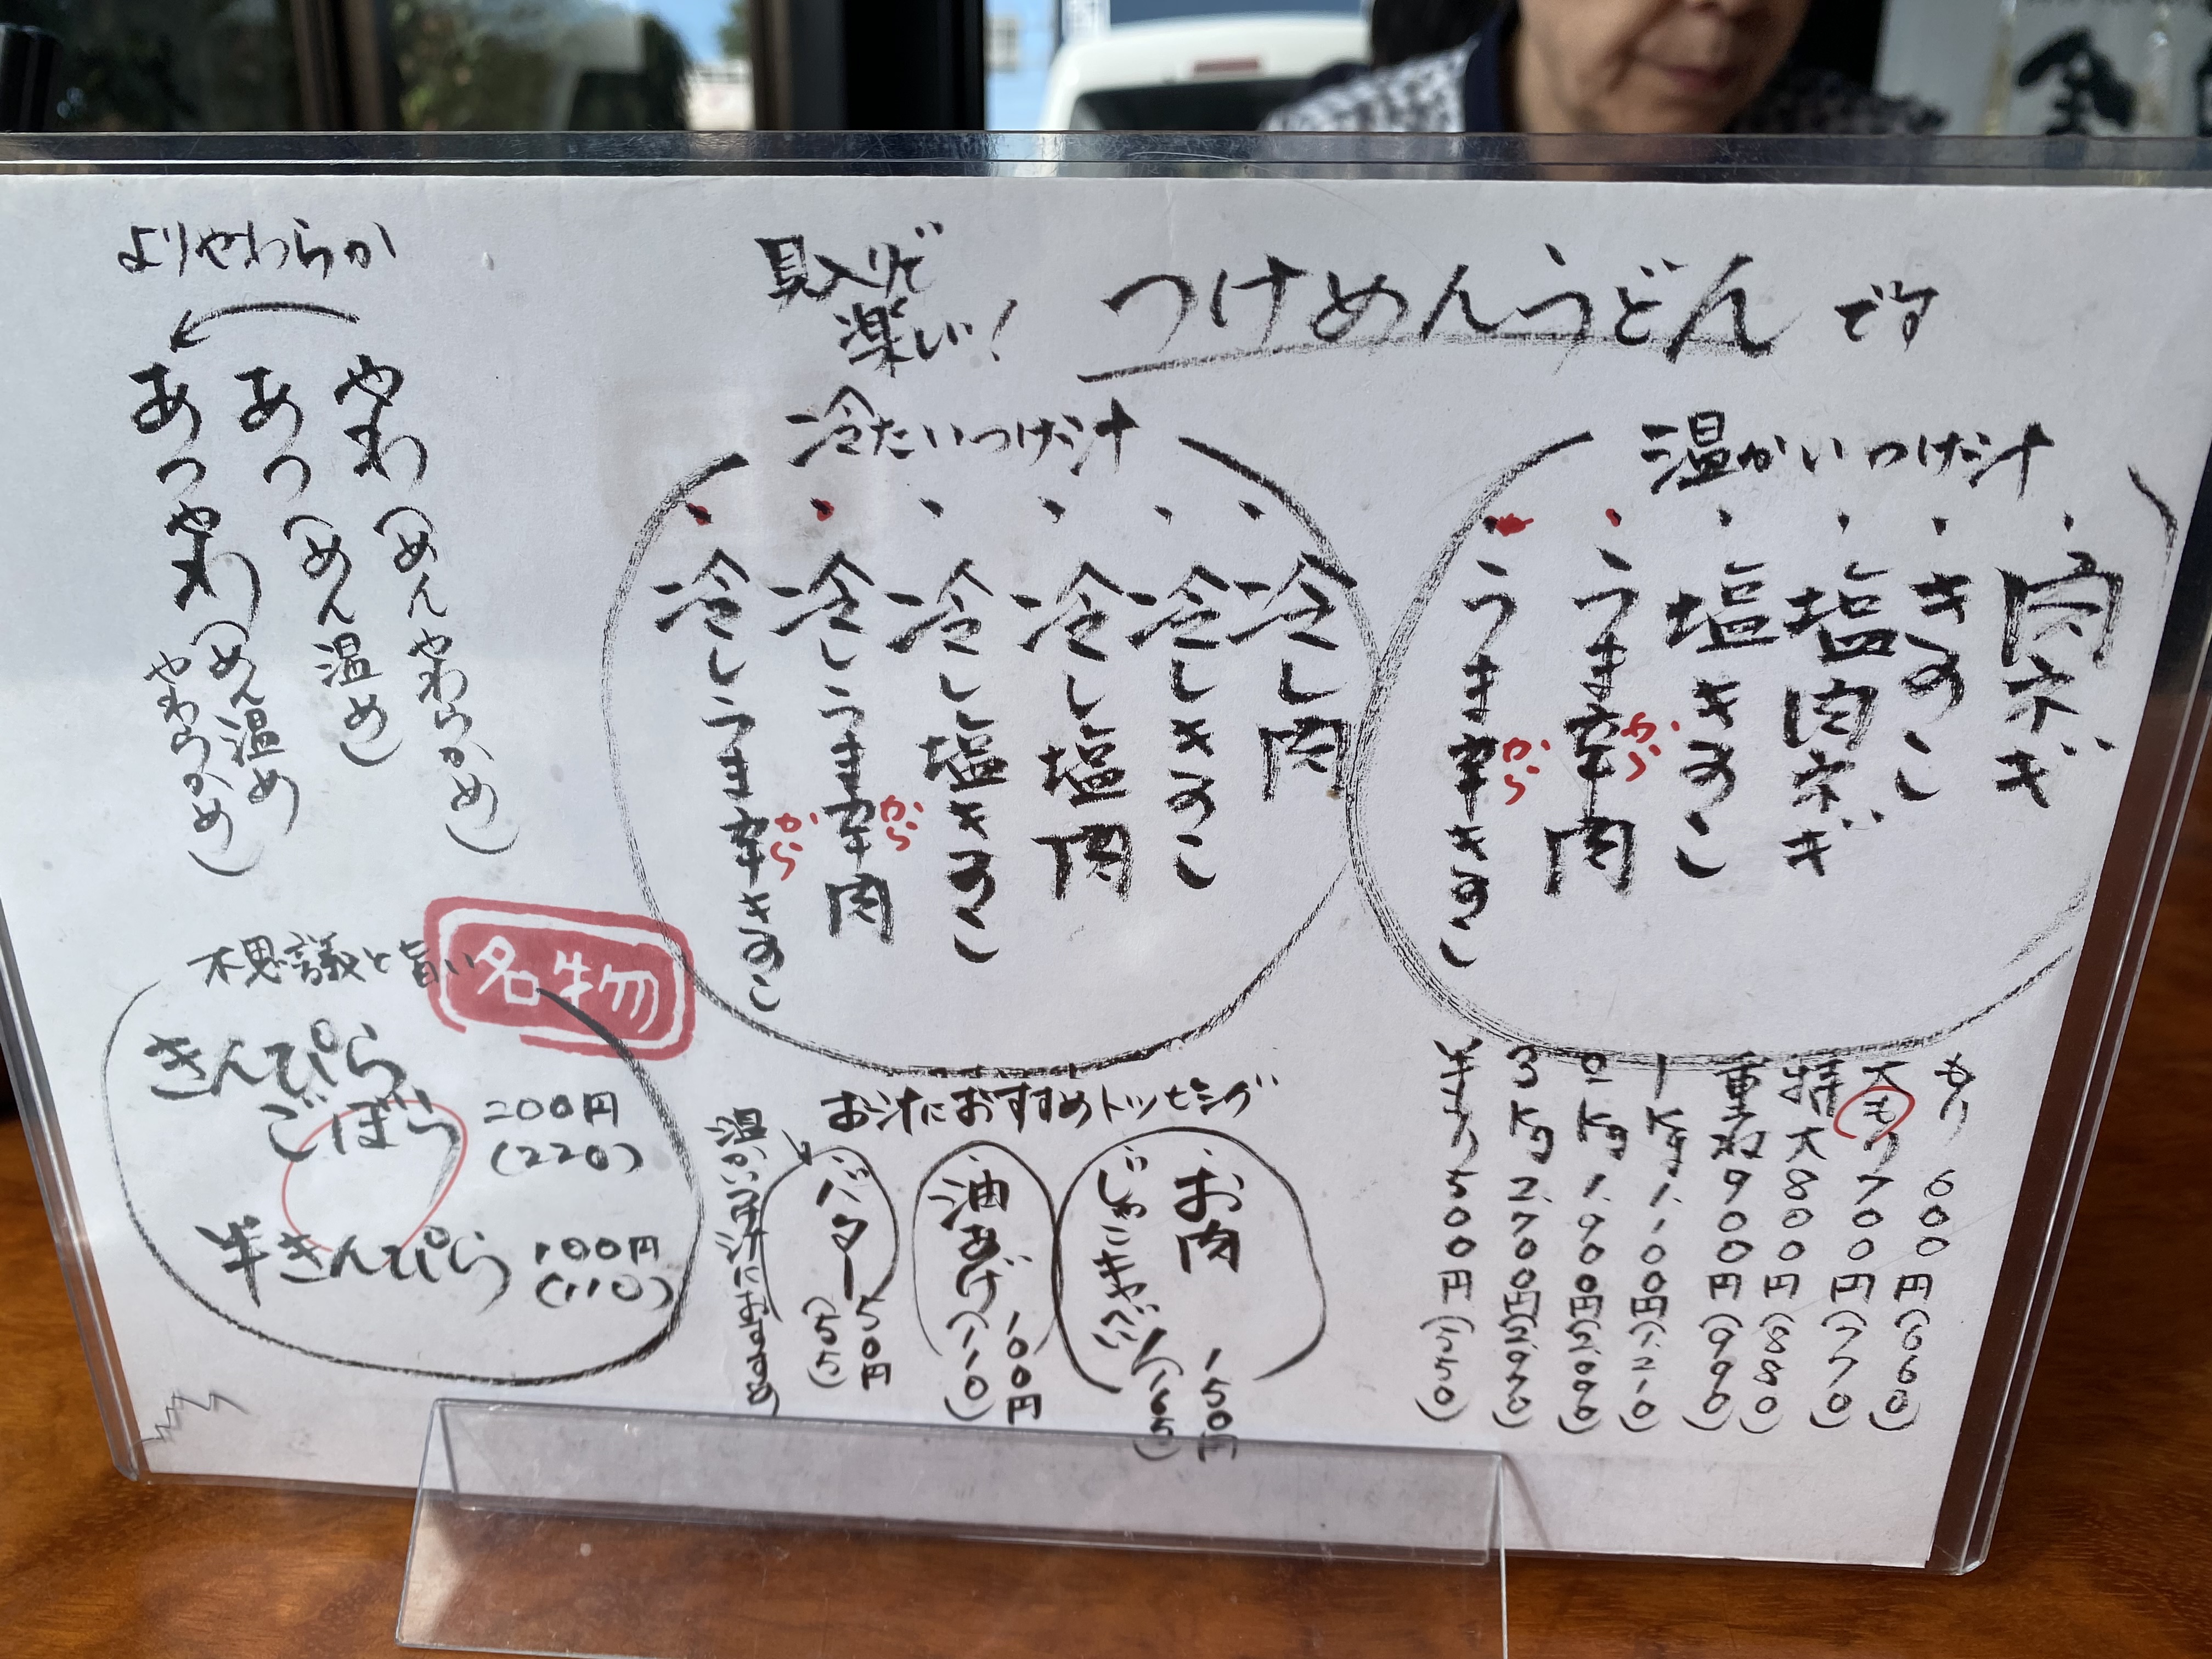 具入りで
楽しい!
つけめんうどんです
温かいつけ汁
・肉ネギ
・きのこ
・塩肉ネギ
・塩きのこ
・うま辛肉
から
・うま辛きのこ
から
冷たいつけ汁
・冷し肉
・冷しきのこ
・冷し塩肉
・冷し塩きのこ
・冷しうま辛肉
から
・冷しうま辛きのこ
から
よりやわらか
やわ(めんやわらかめ)
あつ(めん温め)
あつやわ(めん温め
やわらかめ)
もり 600円(660)
大もり 700円(770)
特大 800円(880)
重盛 900円(990)
1Kg 1.100円(1.210)
2Kg 1.900円(2.090)
3Kg 2.700円(2.970)
半もり 500円(550)
お汁におすすめトッピング
・お肉 150円
・じゃこキャベツ(165)
・油あげ 100円
(110)
・バター 50円
(55)
不思議と旨い
名物
きんぴら
ごぼう
200円
(220)
半きんぴら 100円
(110)